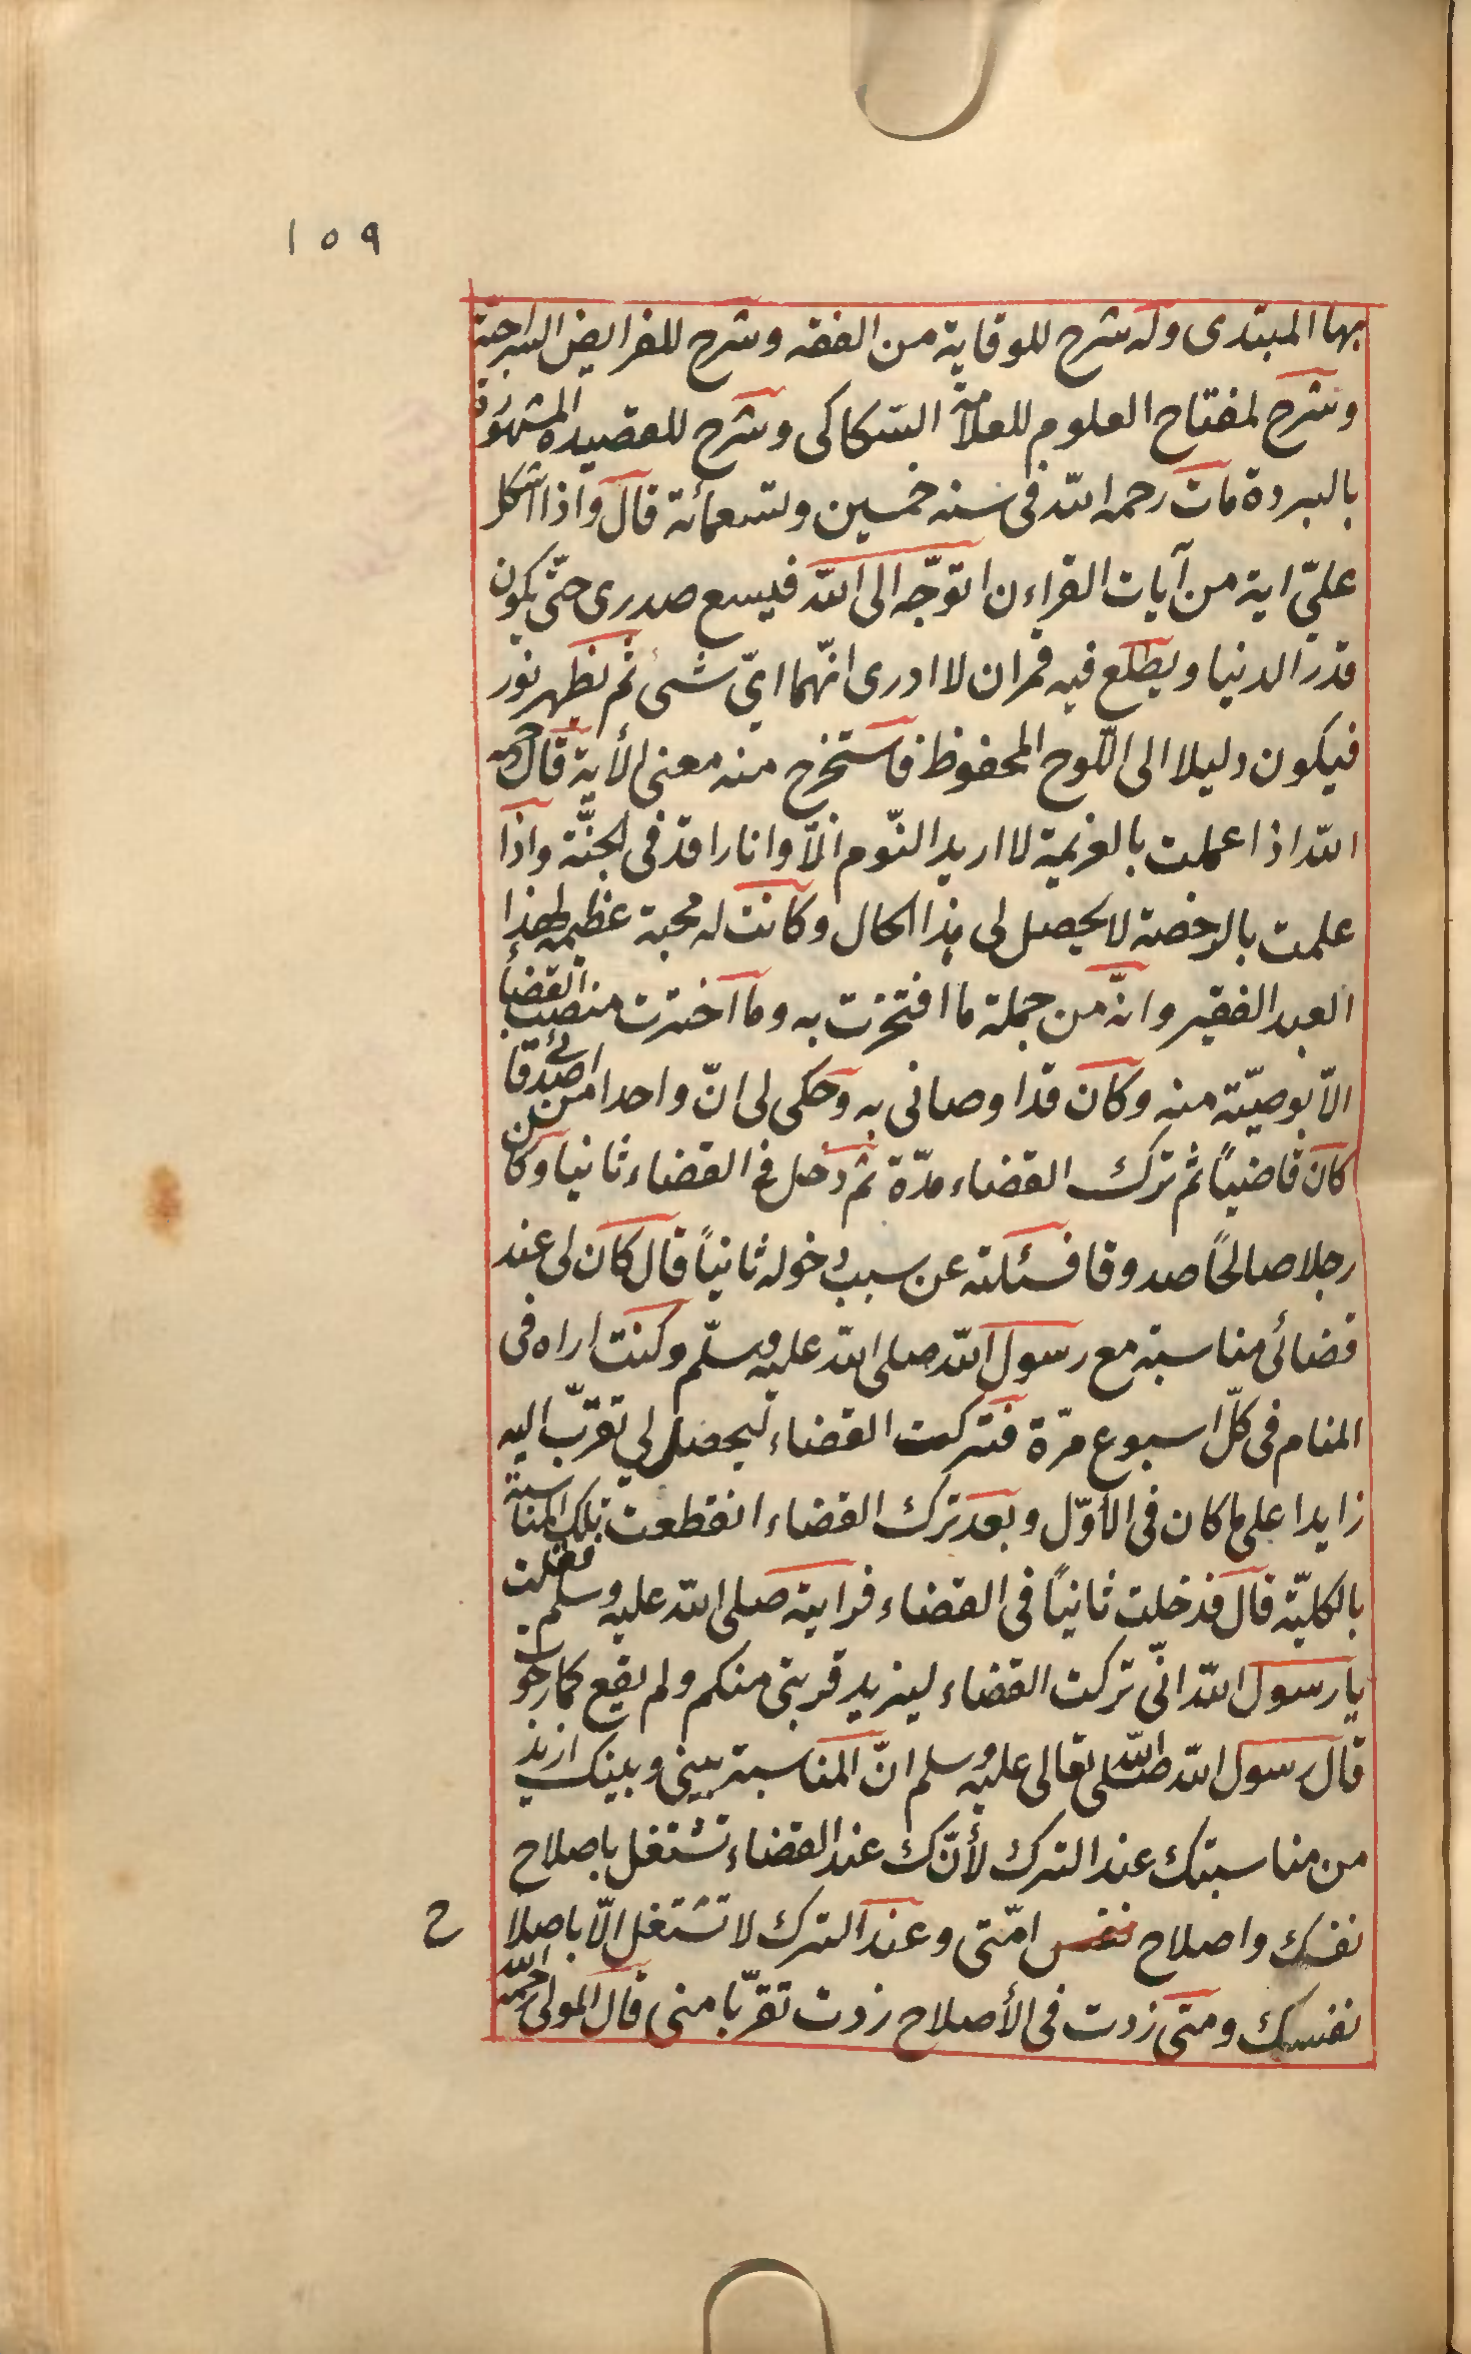 ١٥٩
بها المبتدى وله شرح للوقاية من الفقه وشرح للفرايض السراجية
وشرح لمفتاح العلوم للعلامة السّكاكى وشرح للقصيدة المشهورة
بالبردة مات رحمه اللّه فى سنه خمسين وتسعمائة قال واذا اشكل
علىّ اية من آيات القراءن اتوجّه الى اللّه فيسع صدرى حتّى يكون
قدر الدنيا ويطلع فيه قمران لا ادرى انّهما اىّ شئ ثم يظهر نور
فيكون دليلا الى اللّوح المحفوظ فاستخرج منه معنى الأية قال رحمه
اللّه اذا عملت بالعزيمة لا اريد النّوم الّا وانا راقد فى الجنّة واذا
علمت بالرخصة لا يحصل لى هذا الحال وكانت له محبة عظيمة لهذا
العبد الفقير وانّه من جملة ما افتخرت به وما اخترت منصب القضا
الّا بوصيّة منه وكان قد اوصانى به وحكى لى انّ واحدا من اصدقائى
كان قاضياً ثم ترك القضاء مدّة ثم دخل فى القضاء ثانيا وكان
رجلا صالحاً صدوقا فسئلته عن سبب دخوله ثانياً قال كان لى عند
قضائى مناسبة مع رسول اللّه صلى اللّه عليه وسلّم وكنت اراه فى
المنام فى كلّ اسبوع مرّة فتركت القضاء ليحصل لى تقرّب اليه
زايدا على ما كان فى الأوّل وبعد ترك القضاء انقطعت تلك المناسبة
بالكليّة قال فدخلت ثانياً فى القضاء فرايته صلى اللّه عليه وسلم فقلت
يا رسول اللّه انّى تركت القضاء ليزيد قربتى منكم ولم يقع كما رجوت
قال رسول اللّه صلى اللّه تعالى عليه وسلم انّ المناسبة بينى وبينك ازيد
من مناسبتك عند الترك لأنّك عند القضاء تشتغل باصلاح
نفسك واصلاح نفس امّتى وعند الترك لا تشتغل الّا باصلاح
نفسك ومتى زدت فى الأصلاح زدت تقرّبا منى قال المولى رحمه اللّه